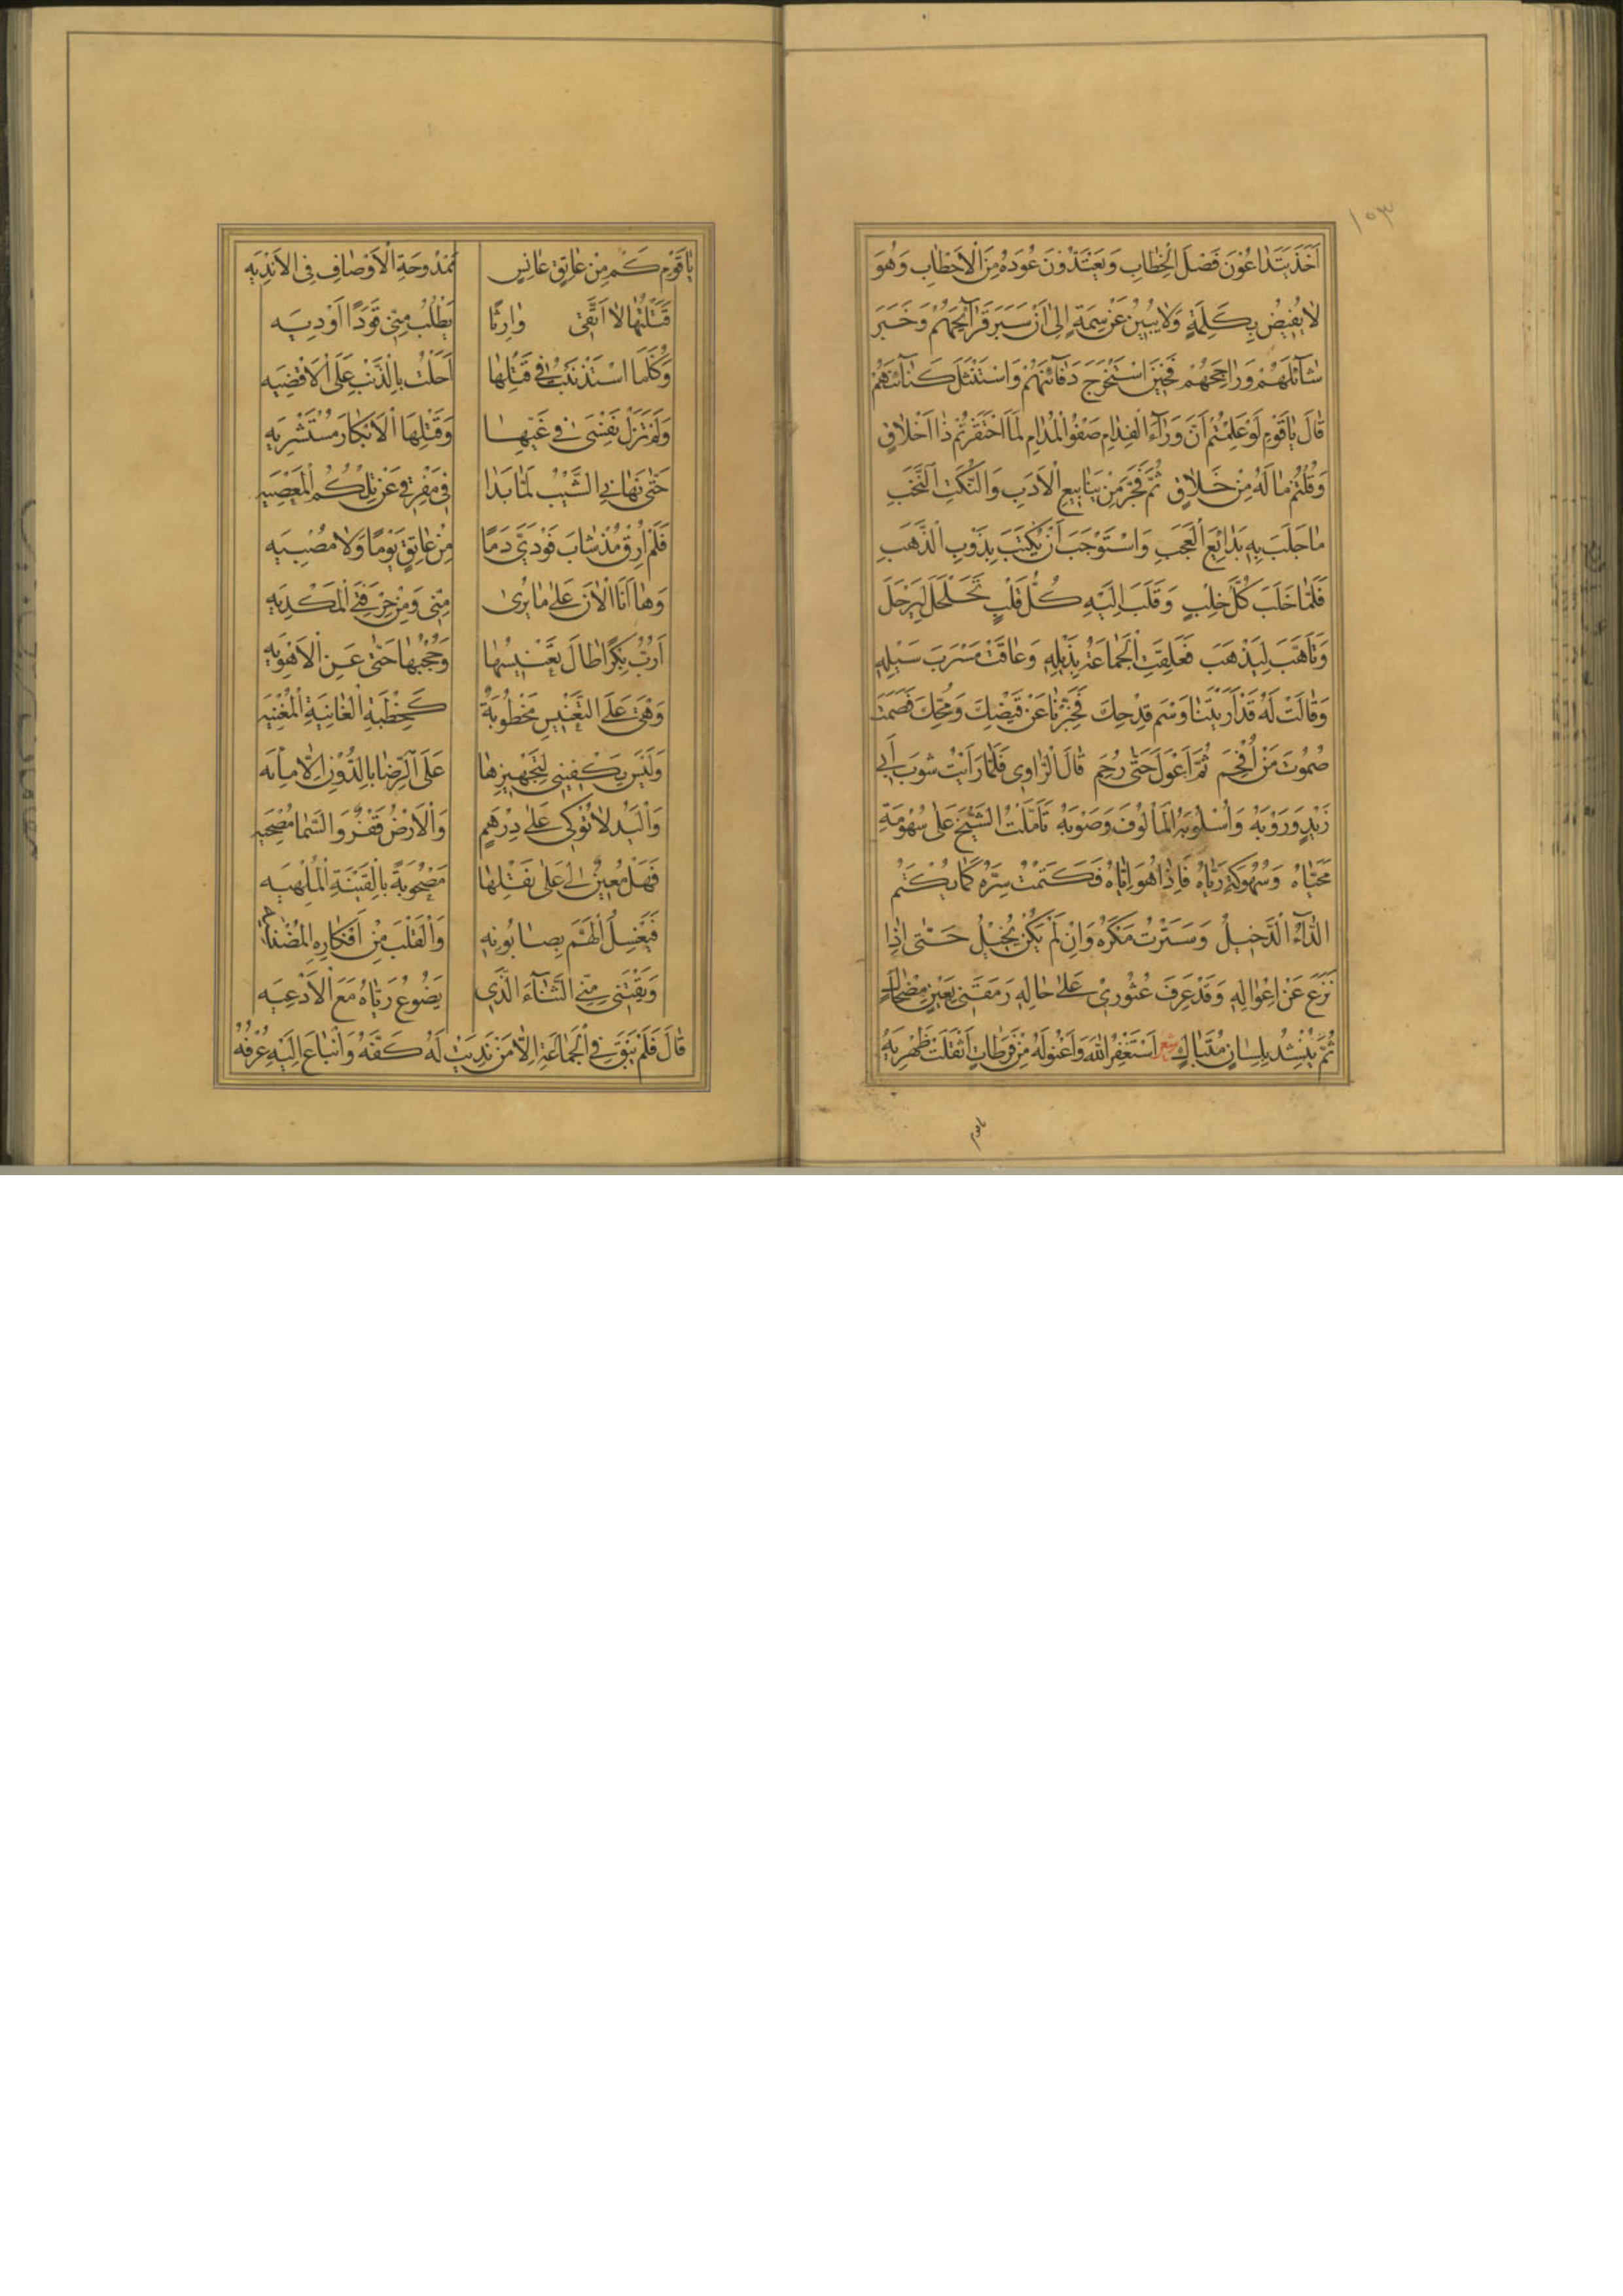 ١٥٣
اَخَذَ يَتَدَاعَوْنَ فَصْلَ الْخِطَابِ وَيَعْتَدُّوْنَ عُوْدَهُ مِنَ الْاَحْطَابِ وَهُوَ
لَا يُفِيْضُ بِكَلِمَةٍ وَلَا يُبِيْنُ عَنْ سِمَةٍ اِلٰى اَنْ سَبَرَ قَرَآئِحَهُمْ وَخَبَرَ
شَآئِلَهُمْ وَرَاجِحَهُمْ فَحِيْنَ اسْتَخْرَجَ دَفَآئِنَهُمْ وَاسْتَنْثَلَ كَنَآئِنَهُمْ
قَالَ يَا قَوْمِ لَوْ عَلِمْتُمْ اَنَّ وَرَآءَ الْفِدَامِ صَفْوَ الْمُدَامِ لَمَا احْتَقَرْتُمْ ذَا اَخْلَاقٍ
وَقُلْتُمْ مَا لَهُ مِنْ خَلَاقٍ ثُمَّ فَجَّرَ مِنْ يَنَابِيْعِ الْاَدَبِ وَالنُّكَتِ النُّخَبِ
مَا جَلَبَ بِهِ بَدَائِعَ الْعَجَبِ وَاسْتَوْجَبَ اَنْ يُكْتَبَ بِذَوْبِ الذَّهَبِ
فَلَمَّا خَلَبَ كُلَّ خِلْبٍ وَقَلَبَ اِلَيْهِ كُلَّ قَلْبٍ تَحَلْحَلَ لِيَرْحَلَ
وَتَاَهَّبَ لِيَذْهَبَ فَعَلِقَتِ الْجَمَاعَةُ بِذَيْلِهِ وَعَاقَتْ مَسْرَبَ سَيْلِهِ
وَقَالَتْ لَهُ قَدْ اَرَيْتَنَا وَسْمَ قِدْحِكَ فَخَبِّرْنَا عَنْ قَيْضِكَ وَمُحِّكَ فَصَمَتَ
صُمُوْتَ مَنْ اُفْحِمَ ثُمَّ اَعْوَلَ حَتّٰى رُحِمَ قَالَ الرَّاوِى فَلَمَّا رَاَيْتُ شَوْبَ اَبِى
زَيْدٍ وَرَوْبَهُ وَاُسْلُوْبَهُ الْمَاْلُوْفَ وَصَوْبَهُ تَاَمَّلْتُ الشَّيْخَ عَلٰى سُهُوْمَةِ
مُحَيَّاهُ وَسُهُوْكَةِ رَيَّاهُ فَاِذَا هُوَ اِيَّاهُ فَكَتَمْتُ سِرَّهُ كَمَا يُكْتَمُ
الدَّآءُ الدَّخِيْلُ وَسَتَرْتُ مَكْرَهُ وَاِنْ لَمْ يَكُنْ يُخِيْلُ حَتّٰى اِذَا
نَزَعَ عَنْ اِعْوَالِهِ وَقَدْ عَرَفَ عُثُوْرِىْ عَلٰى حَالِهِ رَمَقَنِىْ بِعَيْنِ مِضْحَاكٍ
ثُمَّ يُنْشِدُ بِلِسَانٍ مُتَبَاكٍ اَسْتَغْفِرُ اللّٰهَ وَاَعْنُوْ لَهُ مِنْ فَرَطَاتٍ اَثْقَلَتْ ظَهْرِيَهْ
يَا قَوْمِ
يَا قَوْمِ كَمْ مِنْ عَاتِقٍ عَانِسٍ مَمْدُوْحَةِ الْاَوْصَافِ فِى الْاَنْدِيَهْ
قَتَلْتُهَا لَا اَتَّقِىْ وَارِثًا يَطْلُبُ مِنِّىْ قَوَدًا اَوْ دِيَهْ
وَكُلَّمَا اسْتُذْنِبْتُ فِىْ قَتْلِهَا اَحَلْتُ بِالذَّنْبِ عَلَى الْاَقْضِيَهْ
وَلَمْ تَزَلْ نَفْسِىَ فِىْ غَيِّهَا وَقَتْلِهَا الْاَبْكَارَ مُسْتَشْرِيَهْ
حَتّٰى نَهَانِى الشَّيْبُ لَمَّا بَدَا فِىْ مَفْرِقِىْ عَنْ تِلْكُمُ الْمَعْصِيَهْ
فَلَمْ اُرِقْ مُذْ شَابَ فَوْدِىْ دَمًا مِنْ عَاتِقٍ يَوْمًا وَلَا مُصْبِيَهْ
وَهَا اَنَا الْاٰنَ عَلٰى مَا يُرٰى مِنِّىْ وَمِنْ حِرْفَتِى الْمُكْدِيَهْ
اَرُبُّ بِكْرًا طَالَ تَعْنِيْسُهَا وَحُجْبُهَا حَتّٰى عَنِ الْاَهْوِيَهْ
وَهْىَ عَلَى التَّعْنِيْسِ مَخْطُوْبَةٌ كَخِطْبَةِ الْغَانِيَةِ الْمُغْنِيَهْ
وَلَيْسَ يَكْفِيْنِىْ لِتَجْهِيْزِهَا عَلَى الرِّضَا بِالدُّوْنِ اِلَّا مِاْئَه
وَالْيَدُ لَا تُوْكِىْ عَلٰى دِرْهَمٍ وَالْاَرْضُ قَفْرٌ وَالسَّمَا مُصْحِيَهْ
فَهَلْ مُعِيْنٌ لِىْ عَلٰى نَقْلِهَا مَصْحُوْبَةً بِالْقَيْنَةِ الْمُلْهِيَهْ
فَيَغْسِلُ الْهَمَّ بِصَابُوْنِهِ وَالْقَلْبَ مِنْ اَفْكَارِهِ الْمُضْنِيَهْ
وَيَقْتَنِىْ مِنِّى الثَّنَآءَ الَّذِىْ يَضُوْعُ رَيَّاهُ مَعَ الْاَدْعِيَهْ
قَالَ فَلَمْ يَبْقَ فِى الْجَمَاعَةِ اِلَّا مَنْ نَدِيَتْ لَهُ كَفُّهُ وَانْبَاعَ اِلَيْهِ عُرْفُهُ